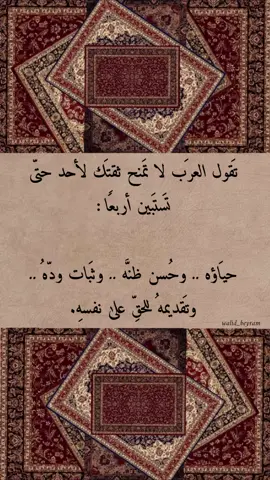 تَقول العرَب لا تَمنح ثقتَك لأحد حتىّ
تَستَبين أربعًا :
حيَاؤه .. وحُسن ظنَّه .. وثبَات ودّهُ ..
وتَقديمهُ للحقِّ على نفسهِ.
walid_beyram